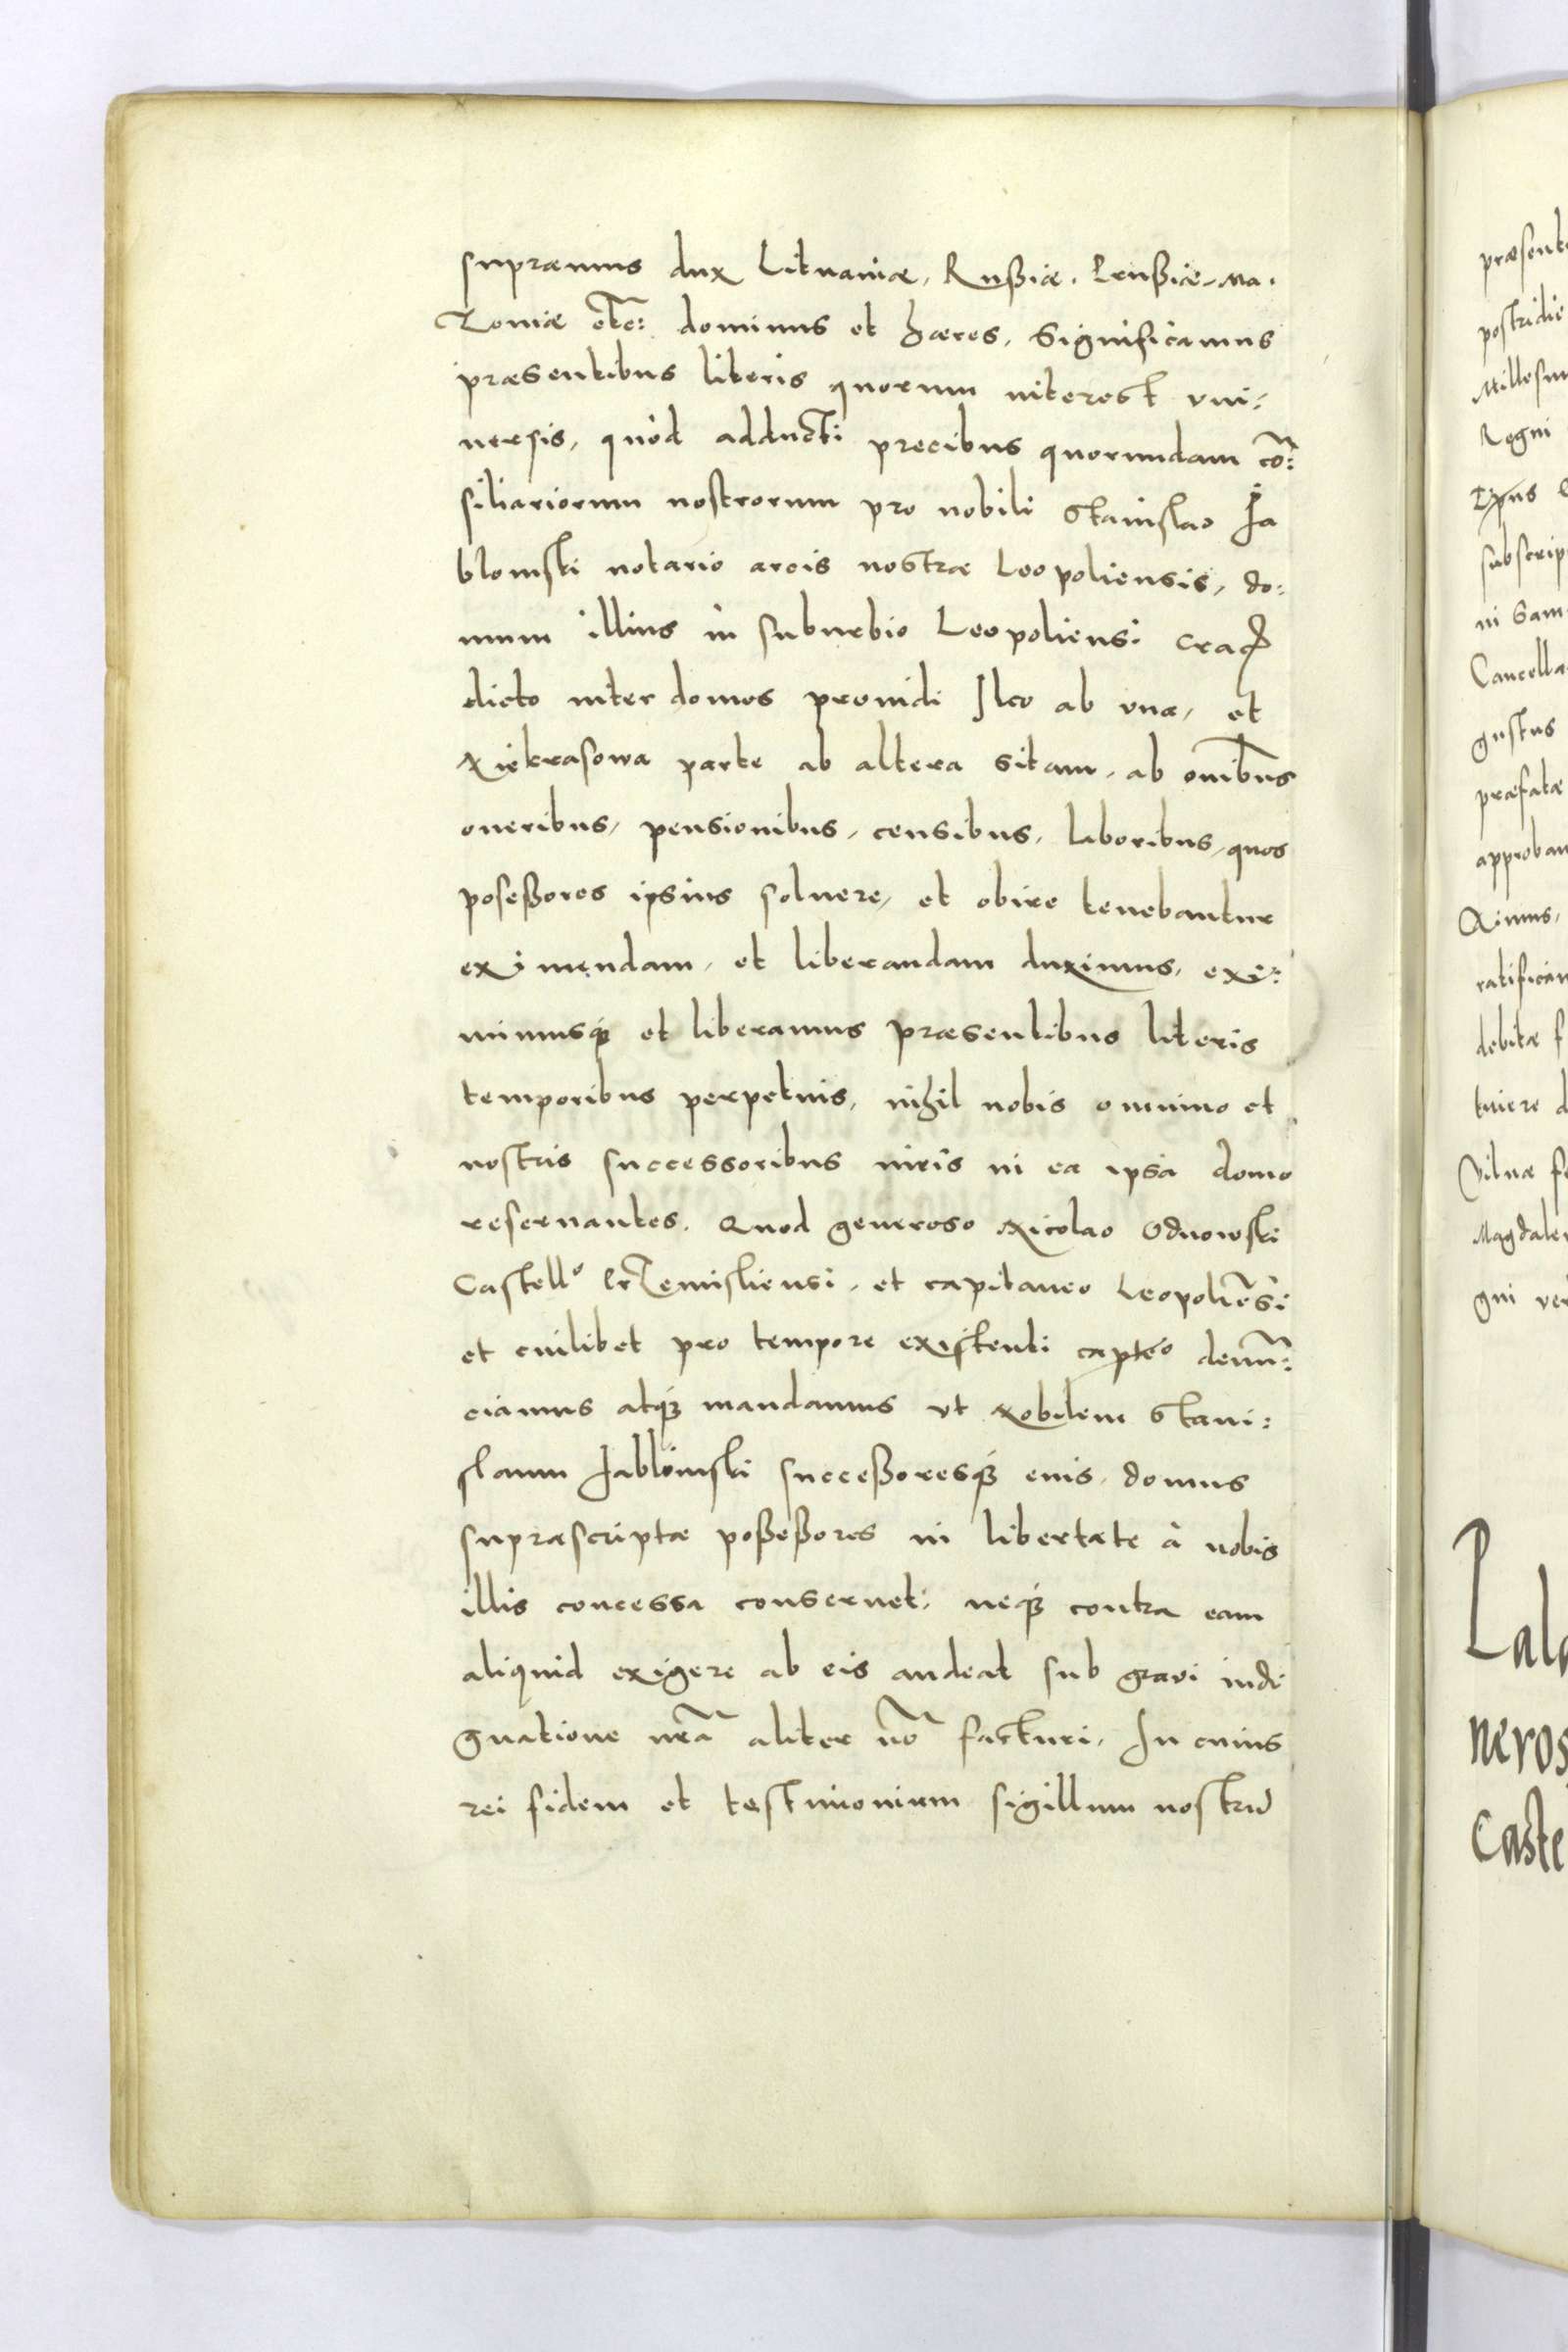 supræmus dux Lituaniæ, Rußiæ. Prußiæ, Ma.
Zoniæ etc: dominus et hæres, Significamus
præsentibus literis quorum interest vni:
uersis, quòd adducti precibus quorundam cõ:
siliariorum nostrorum pro nobili Stanislao Ia
blonski notario arcis nostræ Leopoliensis, do:
mum illius in suburbio Leopoliensi
dicto inter domos prouidi Ilco ab una, et
Niekrasowa parte ab altera sitam, ab oĩbus
oneribus, pensionibus, censibus, laboribus, quos
poseßores ipsius soluere, et obire tenebantur
eximendam, et liberandam duximus, exi:
mimusq3 et liberamus præsentibus literis
temporibus perpetuis, nihil nobis omnino et
nostris successoribus iuris in ea ipsa domo
reseruantes. Quod generoso Nicolao Odnowski
Castellº PrZemisliensi, et capitaneo Leopoliẽsi
et cuilibet pro tempore existenti captéo denũ:
ciamus atq3 mandamus vt Nobilem Stani:
slaum Iablonski succeßoresq3 eius, domus
suprascriptæ poßeßores in libertate à nobis
illis concessa conseruet, neq3 contra eam
aliquid exigere ab eis audeat sub graui indi
gnatione nrã aliter nõ facturi, In cuius
rei fidem et testimonium sigillum nostrũ
præsent
postridie
Millesim
Regni
subscrip
ni Sam
Cancella
gustus
præfatæ
approban
ximus,
ratifican
debitæ f
tuiere d
Vilnæ fe
Magdale
gni ver
Pala
neros
Caste